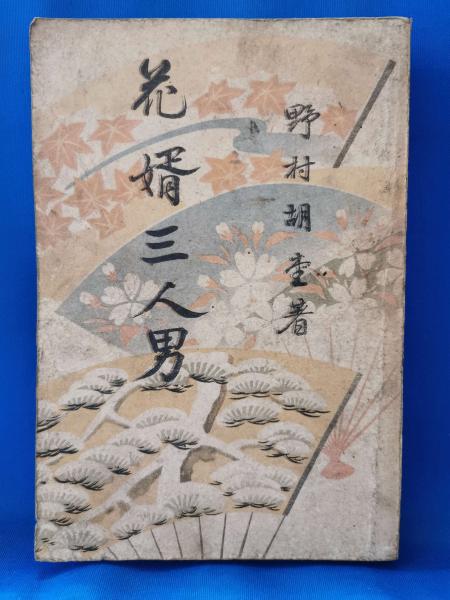 花婿三人男
野村胡堂著